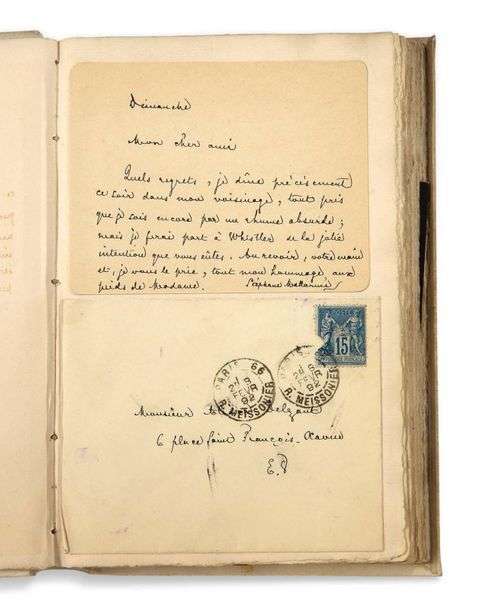 Dimanche
Mon cher ami
Quels regrets, je dîne précisément
ce soir dans mon voisinage, tout pris
que je sois encore par un rhume absurde;
mais je ferai part à Whistler de la jolie
intention que vous eûtes. Au revoir, votre main
et, je vous le prie, tout mon hommage aux
pieds de Madame. Stéphane Mallarmé
15
PARIS 66
R. MEISSONIER
R. MEISSONIER
Monsieur
6 place Saint François-Xavier
E.V